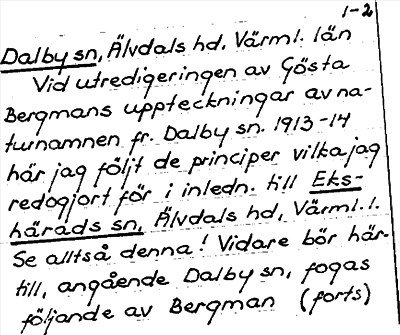 1-2
Dalby sn, Älvdals hd. Värml. län
Vid utredigeringen av Gösta
Bergmans uppteckningar av na-
turnamnen fr. Dalby sn. 1913-14
här jag följt de principer vilka jag
redogjort för i inledn. till Eks-
härads sn, Älvdals hd, Värml. l.
Se alltså denna! Vidare bör här-
till, angående Dalby sn, fogas
följande av Bergman (forts)